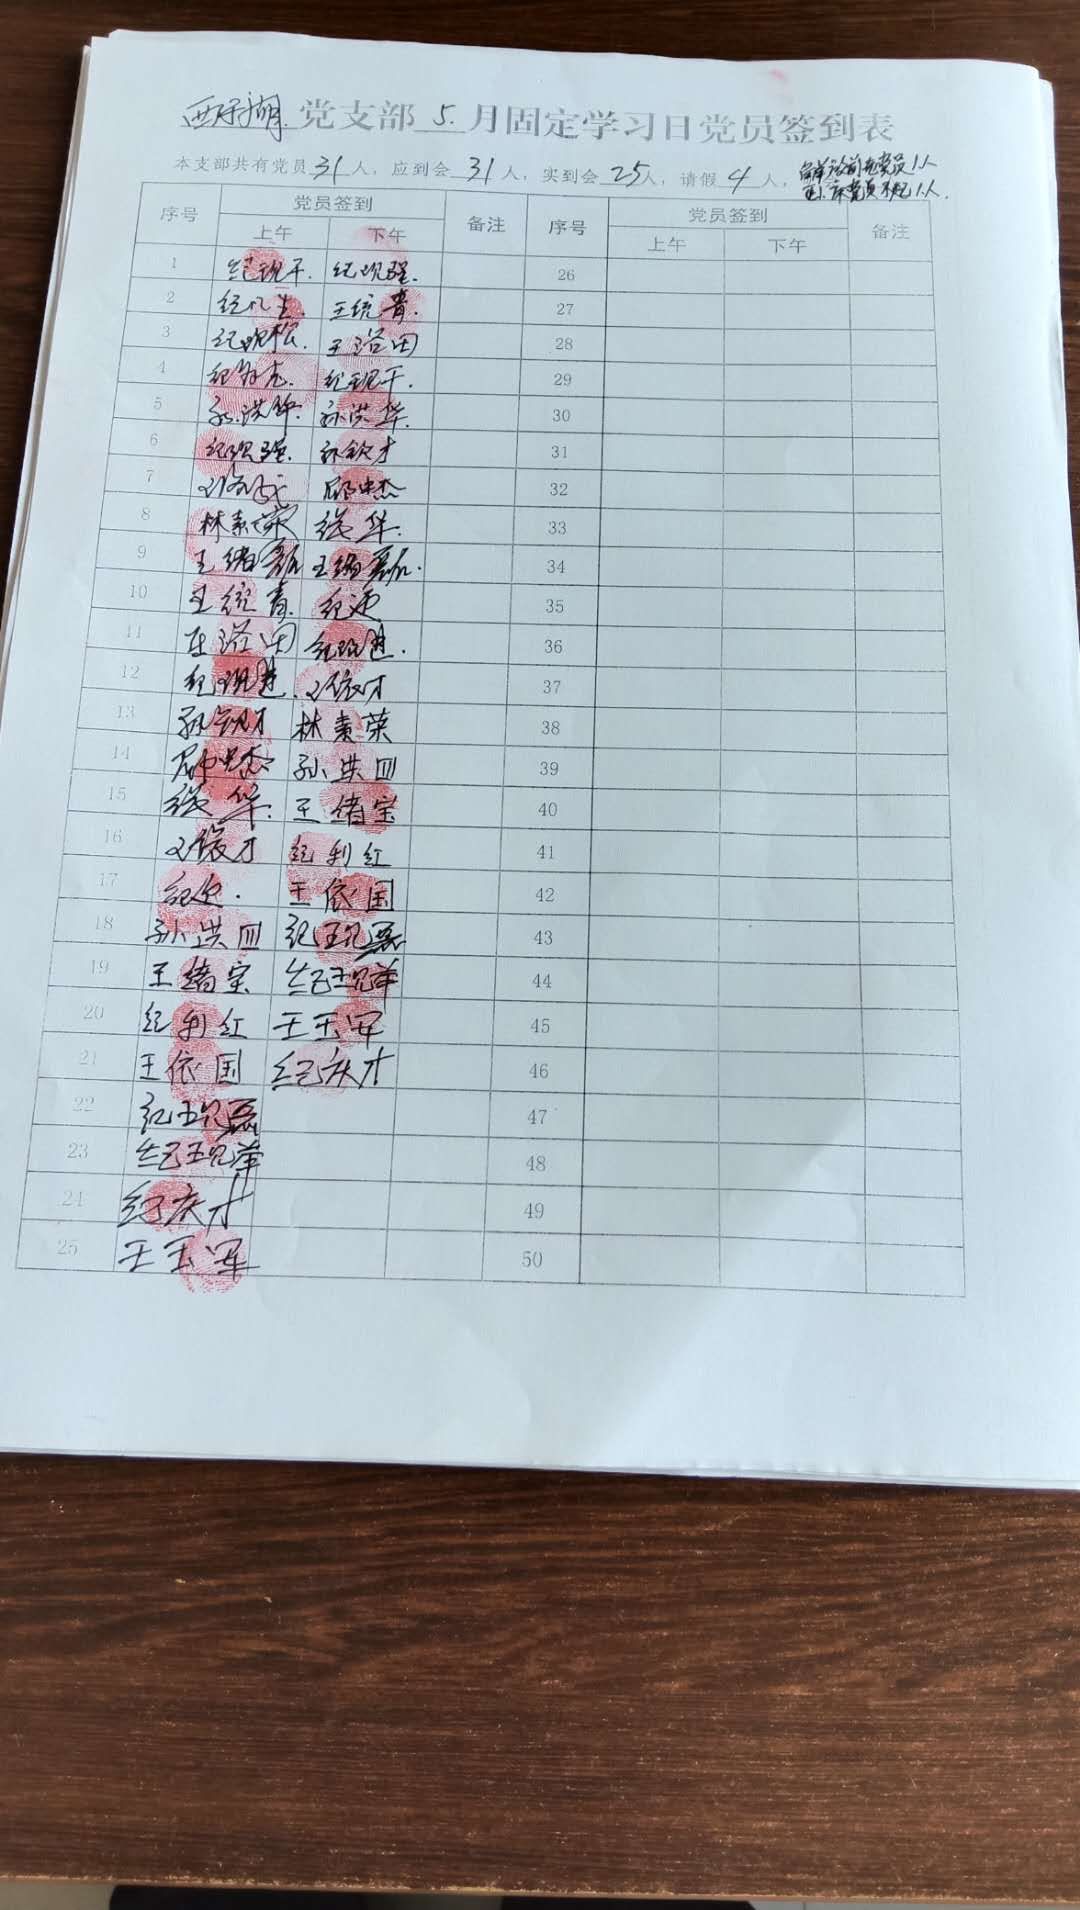 党支部 5 月固定学习日党员签到表
本支部共有党员 31 人，应到会 31 人，实到会 25 人，请假 4 人，
序号 党员签到 备注 序号 党员签到 备注
上午 下午 上午 下午
1 纪现平. 纪现强. 26
2 王绪青. 27
3 纪晓松. 王浴田 28
4 纪现平. 29
5 孙洪华. 孙洪华. 30
6 纪现强. 孙钦才 31
7 邱中杰 32
8 林素荣 张华. 33
9 王绪磊 王绪磊. 34
10 王绪青. 纪迎 35
11 王浴田 纪现进. 36
12 纪现进. 刘俊才 37
13 孙钦才 林素荣 38
14 邱中杰 孙洪四 39
15 张华. 王绪宝 40
16 刘俊才 纪利红 41
17 纪迎. 王依国 42
18 孙洪四 纪现磊 43
19 王绪宝 纪现萍 44
20 纪利红 王玉军 45
21 王依国 纪庆才 46
22 纪现磊 47
23 纪现萍 48
24 纪庆才 49
25 王玉军 50